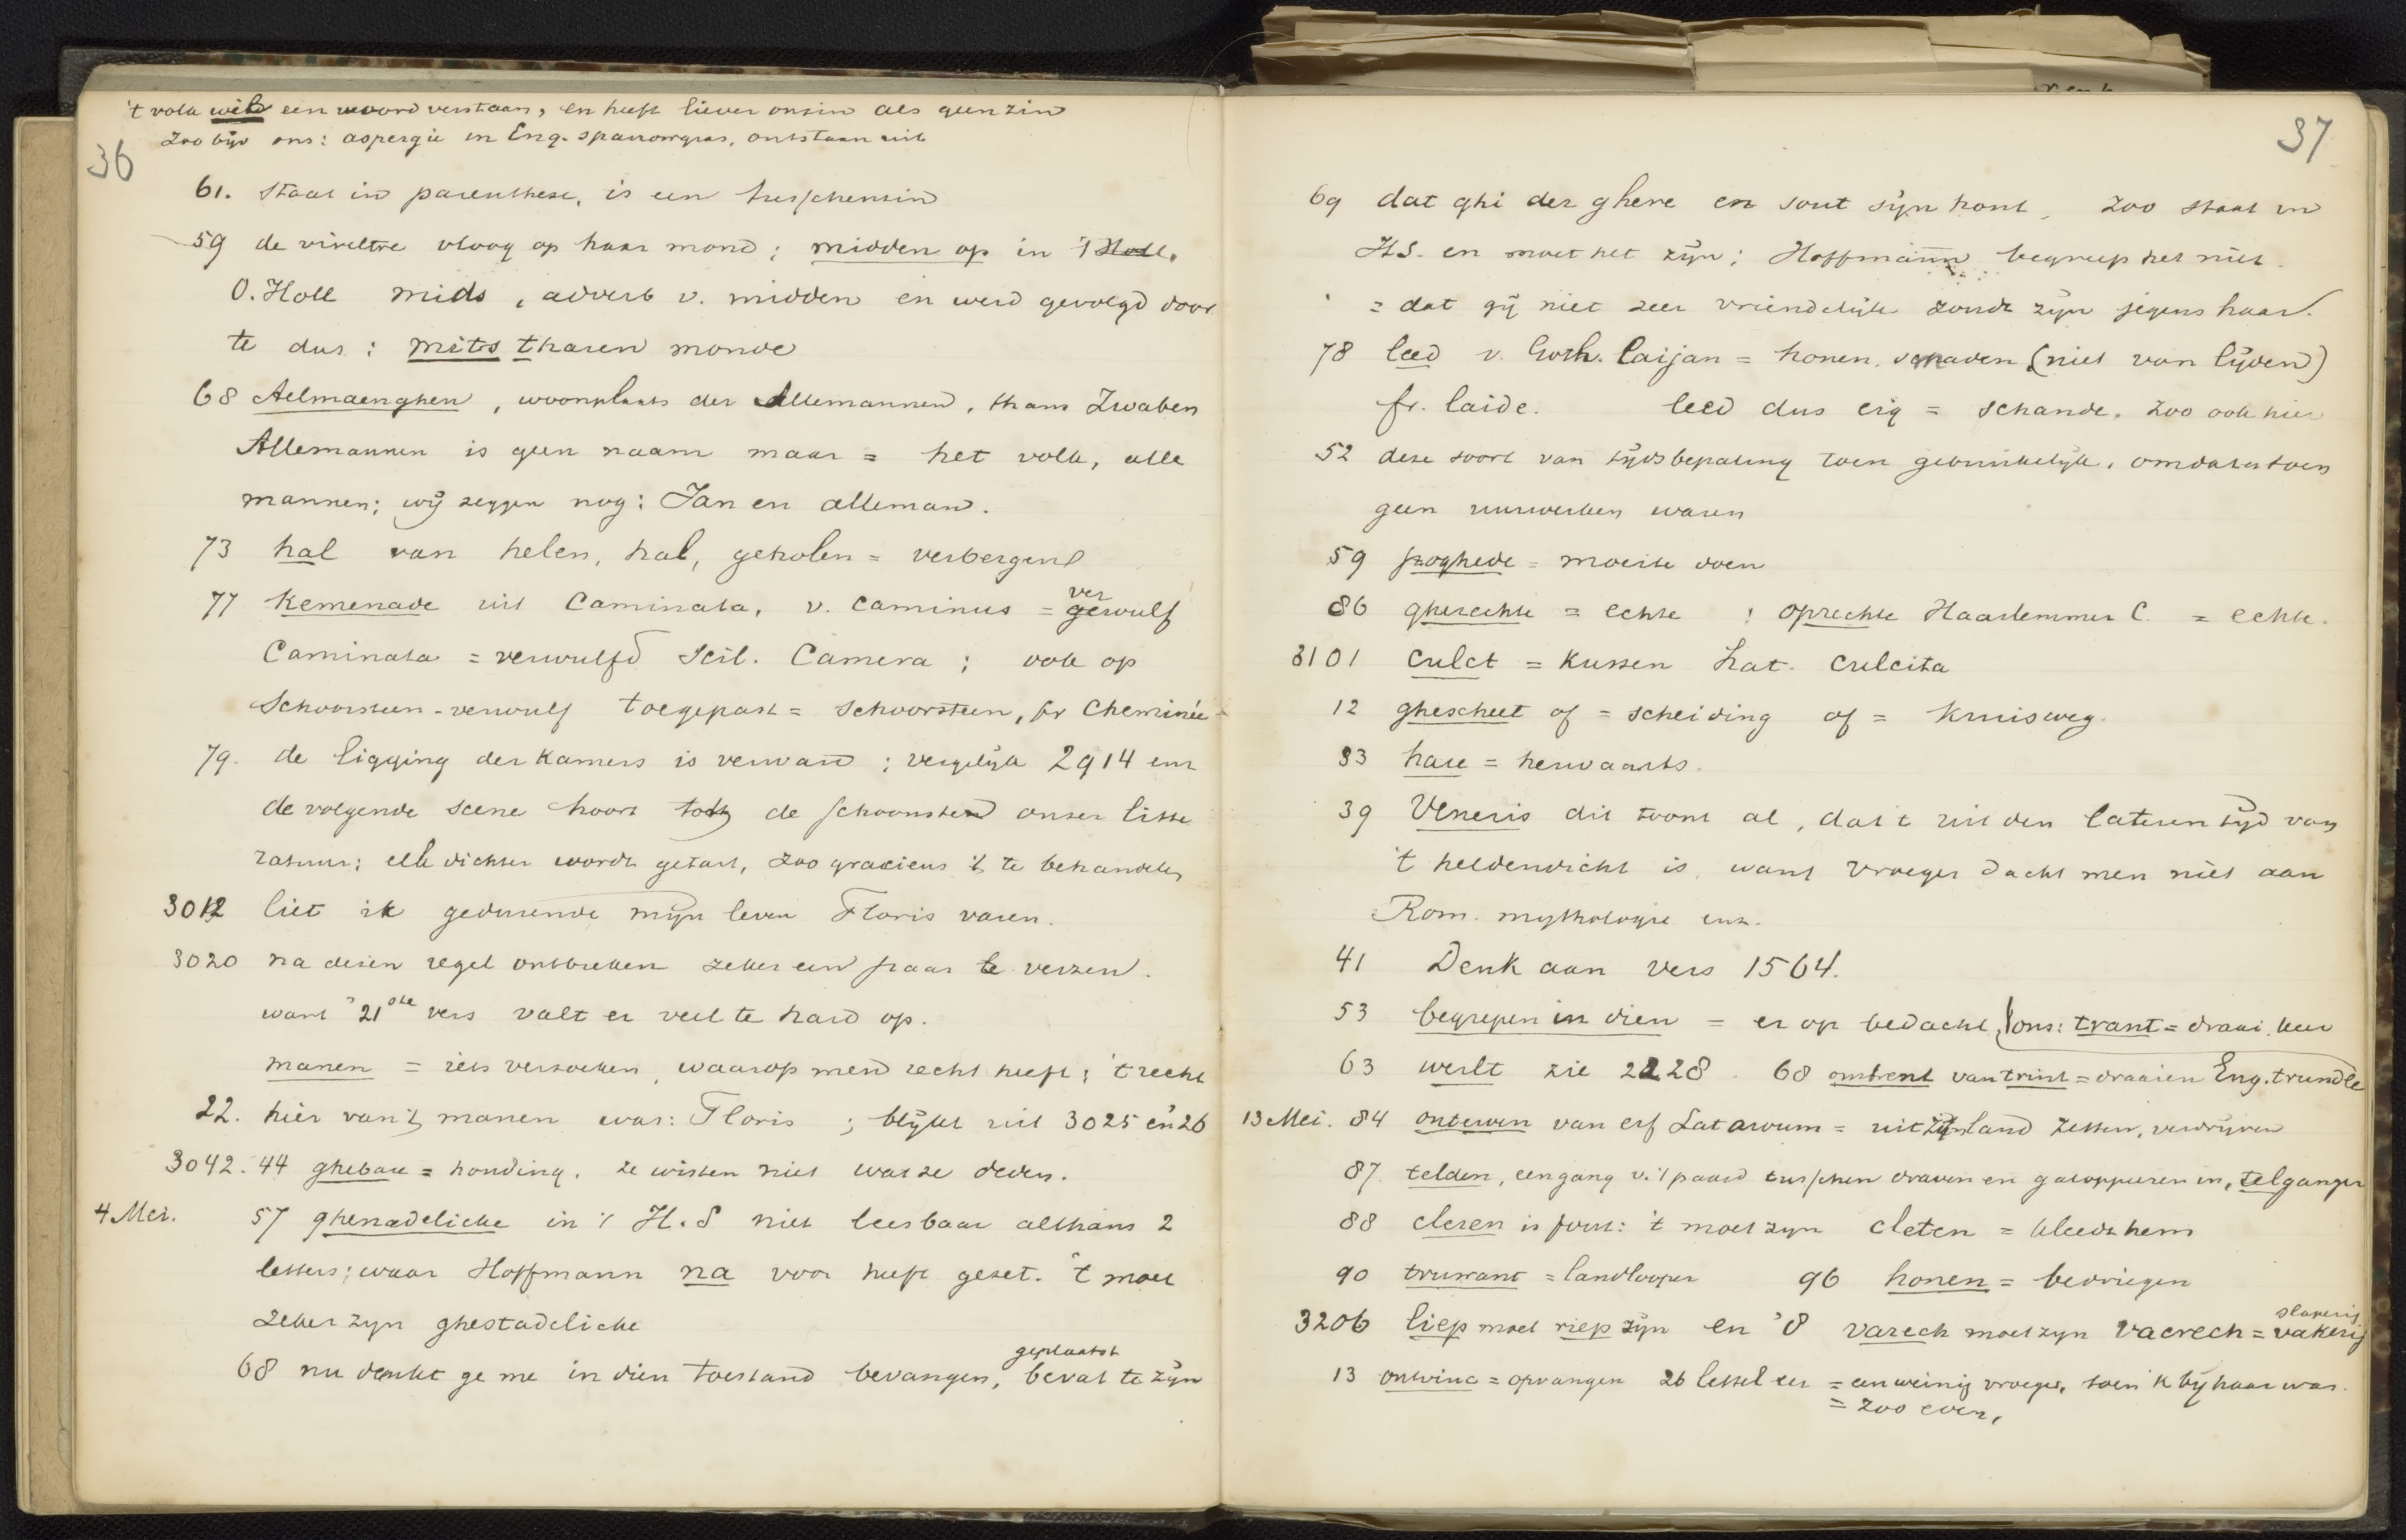 't volk wil een woord verstaan, en heeft liever onzin als geen zin
Zoo bijv ons: aspergie in Eng. sparrowgras, ontstaan uit
36
61. staat in parenthese, is een tusschenzin
59 de vireltre vloog op haar mond; midden op in 't Holl.
O. Holl mids, adverb v. midden en werd gevolgd door
te dus: mits tharen monde
68 Aelmaenghen, woonplaats der Allemannen, thans Zwaben
Allemannen is geen naam maar = het volk, alle
mannen; wij zeggen nog: Jan en alleman.
73 hal van helen, hal, geholen = verbergend
77 Kemenade uit Caminata, v. caminus = gewulf
ver
Caminata = verwulfd scil. Camera; ook op
Schoorsteen-verwulf toegepast = schoorsteen, fr Cheminée
79. de ligging der kamers is verward; vergelijk 2914 enz
de volgende scene hoort tot de schoonsten onzer litte
ratuur; elk dichter wordt getart, zoo gracieus 't te behandelen
3012 liet ik gedurende mijn leven Floris varen.
3020 na dezen regel ontbreken zeker een paar te verzen.
want 't 21ste vers valt er veel te hard op.
manen = iets verzoeken, waarop men recht heeft; 't recht
22. hier van 't manen was: Floris; blijkt uit 3025 en 26
3042. 44 ghebare = houding. ze wisten niet wat ze deden.
4 Mei. 57 ghenadeliche in 't H.S niet leesbaar althans 2
letters; waar Hoffmann na voor heeft gezet. 't moet
zeker zyn ghestadeliche
68 nu denkt ge me in dien toestand bevangen, bevat te zijn
geplaatst
37
69 dat ghi der ghere en sout sijn hont. Zoo staat in
H.S. en moet het zijn; Hoffmann begreep het niet.
= dat gij niet zeer vriendelijk zoudt zijn jegens haar.
78 leed v. Goth. laijan = honen, smaden (niet van lijden)
fr. laide. leed dus eig = schande. Zoo ook hier
52 deze soort van tijdsbepaling toen gebruikelijk, omdat er toen
geen uurwerken waren
59 poghede = moeite doen
86 gherechte = echte ; oprechte Haarlemmer C. = echte.
3101 culct = kussen Lat. culcita
12 ghescheet of = scheiding of = kruisweg.
33 hare = herwaarts.
39 Veneris dit toont al, dat 't uit den lateren tijd van
't heldendicht is, want vroeger dacht men niet aan
Rom. mythologie enz.
41 Denk aan vers 1564.
53 begrepen in dien = er op bedacht, ons: trant = draai, keer
63 werlt zie 2228. 68 omtrent van trint = draaien Eng. trundle
13 Mei. 84 onterven van erf Lat arvum = uit zijn land zetten, verdrijven
87. telden, een gang v. 't paard tusschen draven en galoppeeren in, telganger
88 cleren is fout: 't moet zyn cleten = kleedt hem
90 truwant = landlooper 96 honen = bedriegen
3206 liep moet riep zijn en '8 varech moet zyn vacrech = vakerij
slaperig
13 ontvinc = opvangen 26 lettel eer = een weinig vroeger, toen ik bij haar was.
= zoo even,